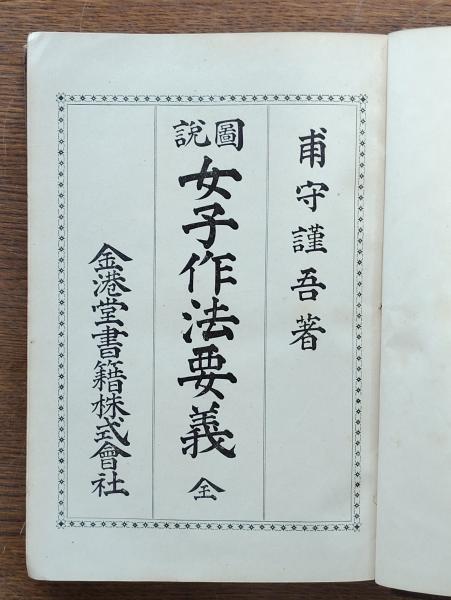 甫守謹吾著
圖說
女子作法要義 全
金港堂書籍株式會社